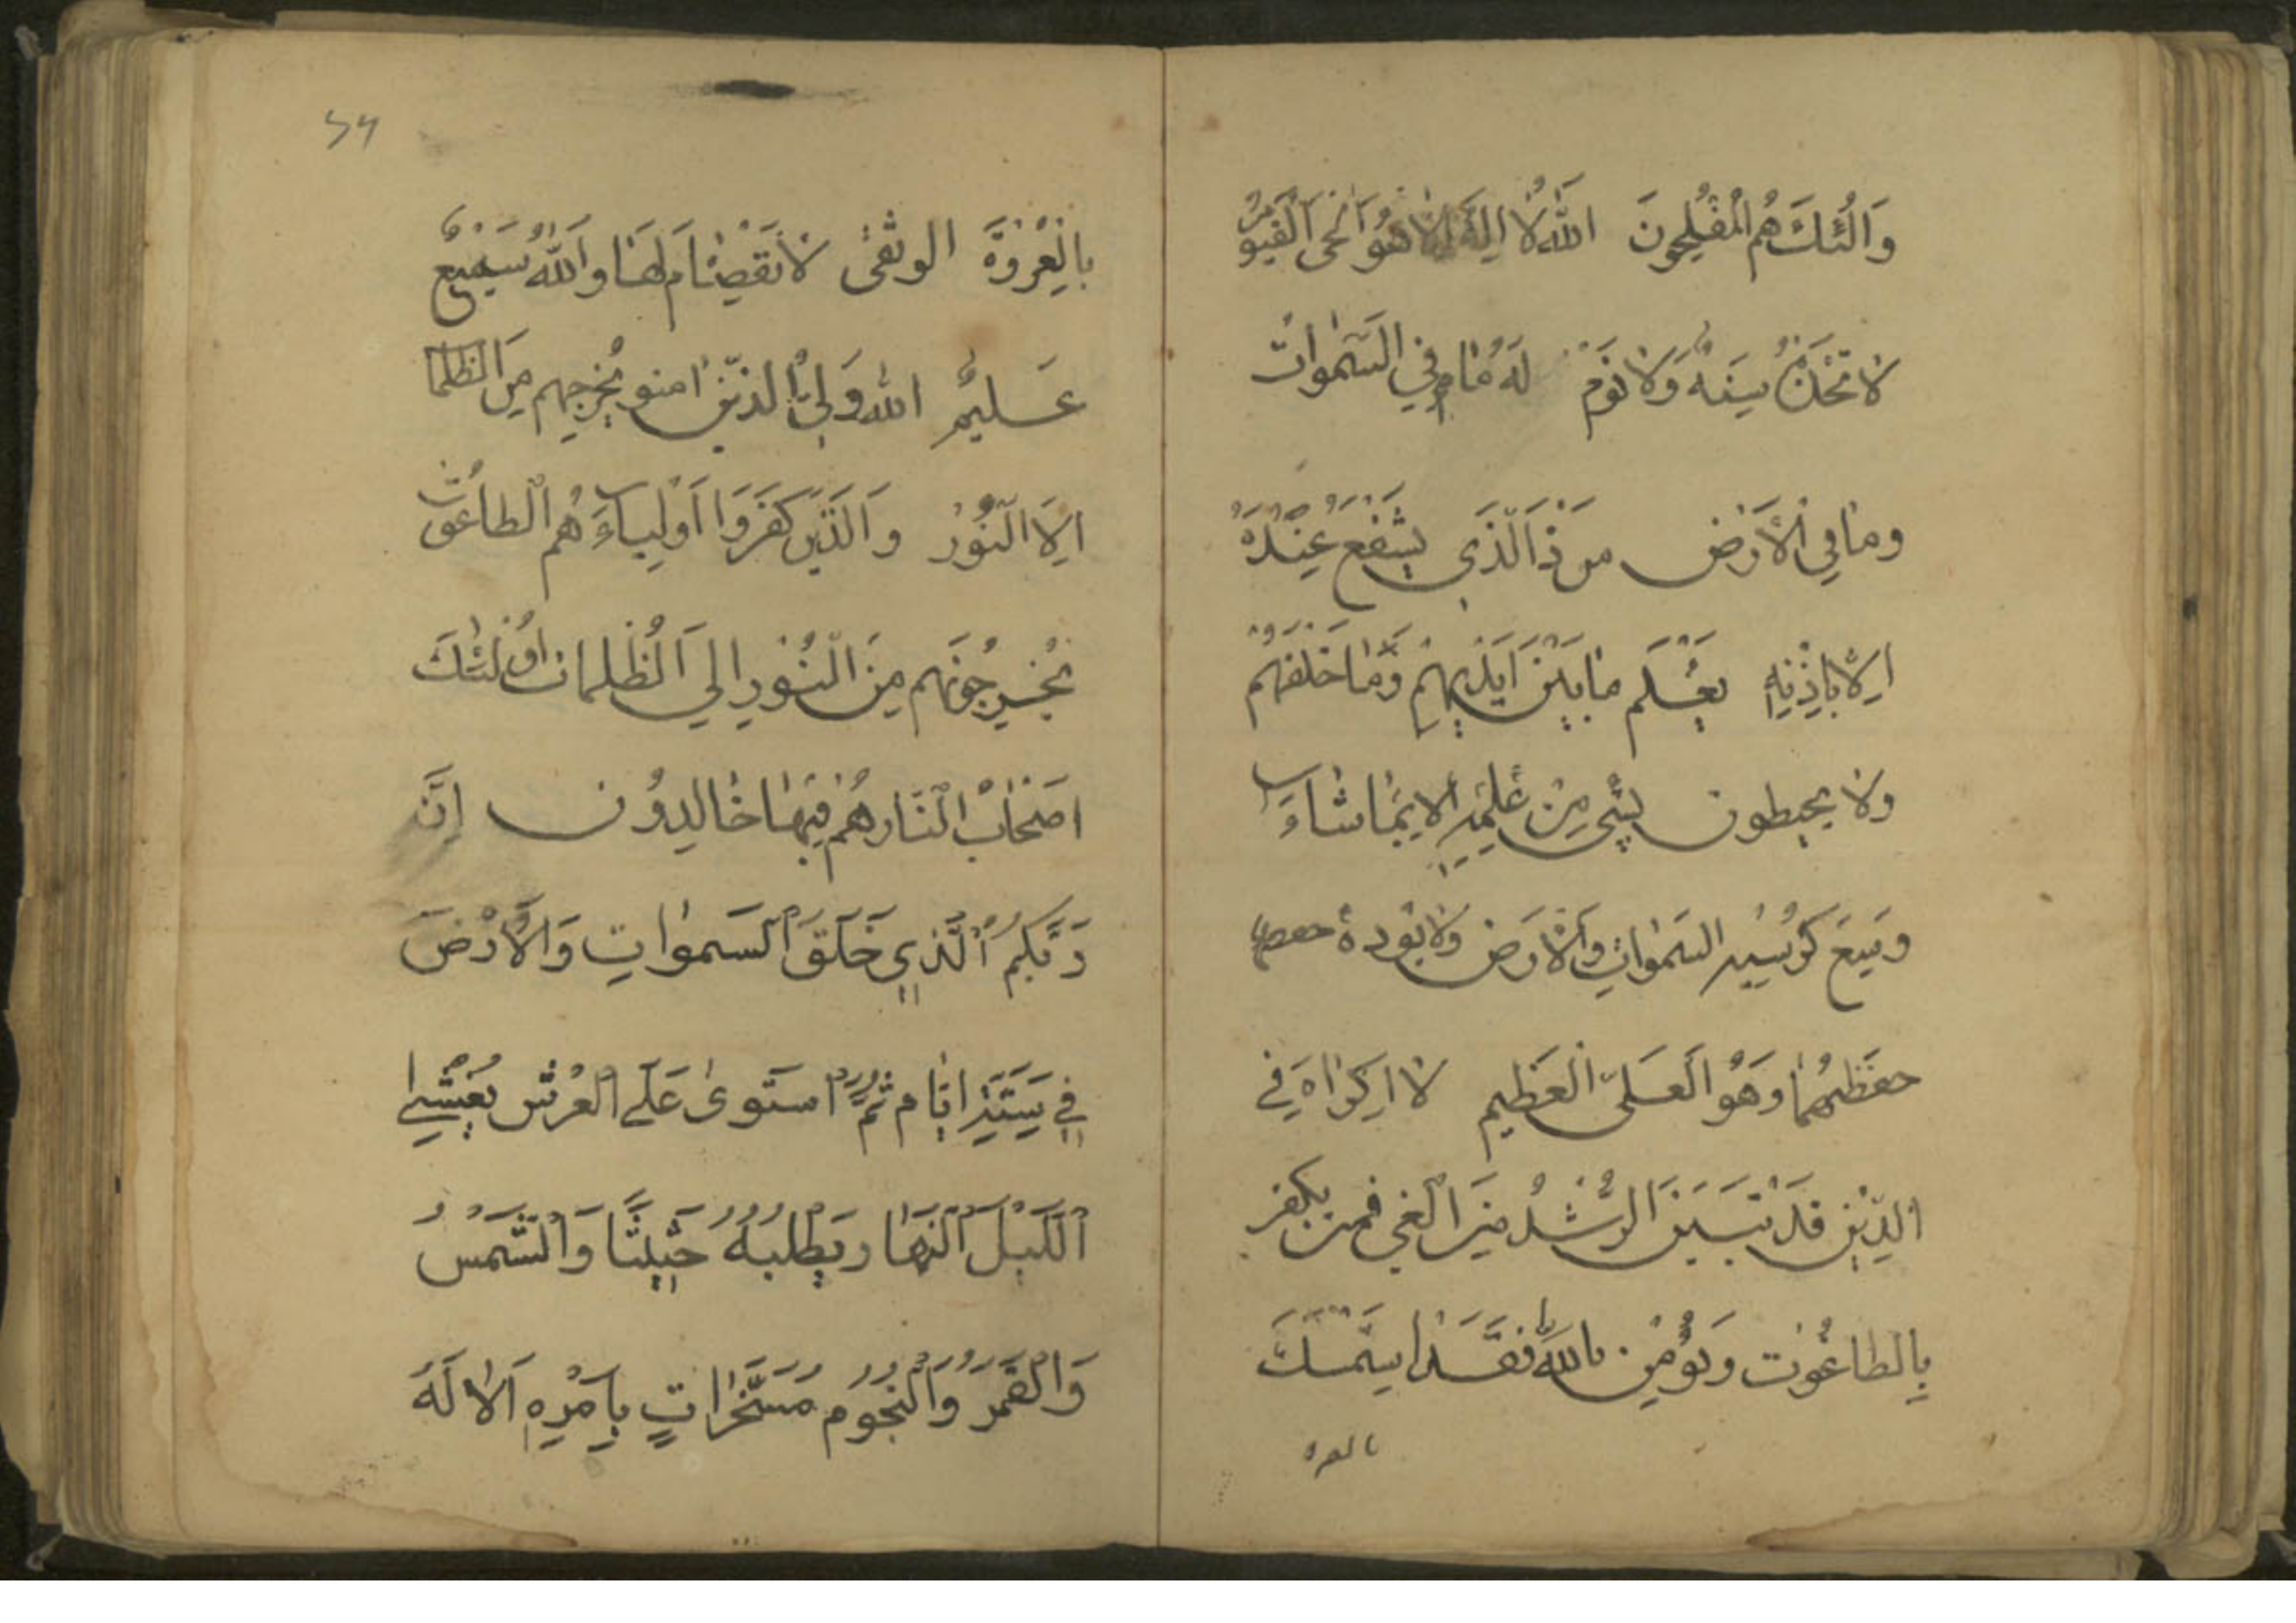 وَالُئكَ هُمُ الْمُفْلِحُونَ اللهُ لَا اِلهَ اِلَّا هُوَ الْحَى الْقَيُّومُ
لَا تَخُذُهُ سِنَةُ وَلَا نَوْم لَهُ مَا فِي السَّمٰوات
وما في الْأَرْض من ذَالَّذَي يَشْفَعُ عِنْدَهُ
اِلَّا بِاِذْنِهِ يَعْلَم مَا بَيْنَ اَيْدِيهِمْ وَمَا خَلْفَهُمْ
ولا يحيطون بِشَىٍ مِنْ عِلْمِهِ اِلَّا بِمَا شَاءَ
وَسِعَ كُرْسِيُّه السَّمٰوَاتِ وَالْأَرَضَ وَلَا يَؤُدهُ حفظهما
حفظَهُمَا وَهُوَ الْعَلىّ الْعَظِيم لَا اِكرَاهَ فِي
الدِّيْنِ قَدْ تَبَيَنَ الرُّشْدُ مِنَ الْغي فمن يكفر
بِالطاغُوت وَيُؤْمِن بالله فَقَد اسْتَمْسَكَ
بالعره
٢٤
بِالْعُرْوَة الوثقٰى لَا نقِصَامَ لَهَا وَاللهُ سَمِيعُ
عَلِيمٌ الله وَلِىُّ الذيْنَ امنو يُخرِجهم مِنَ الظلما
اِلَا النُّوْر وَالَّذَيْنَ كَفَرَوَا اَوْلِيَاءَ هُم الْطاغُوتُ
يُخْرِجُونَهم مِنَ الْنُّوْرِ الي الْظُلمات اوُلٰئكَ
اصْحَابُ الْنَّار هُم فِيهَا خَالِدُون اِنَّ
رَبَّكُمُ الَّذِي خَلَقَ الْسَمٰوَاتِ وَالْأَرْضَ
فِي سِتَةِ ايَّام ثُمَّ اسَتَوىٰ عَلَى الْعَرْش يُغْشِى
الَّليْلَ الْنَهَار يَطْلُبُهُ حَثِيثًا وَالْشَّمْسُ
وَالْقَمَرَ وَالْنُجُوم مُسَخَّرَاتٍ بِاَمْرِهِ اَلَا لَهُ